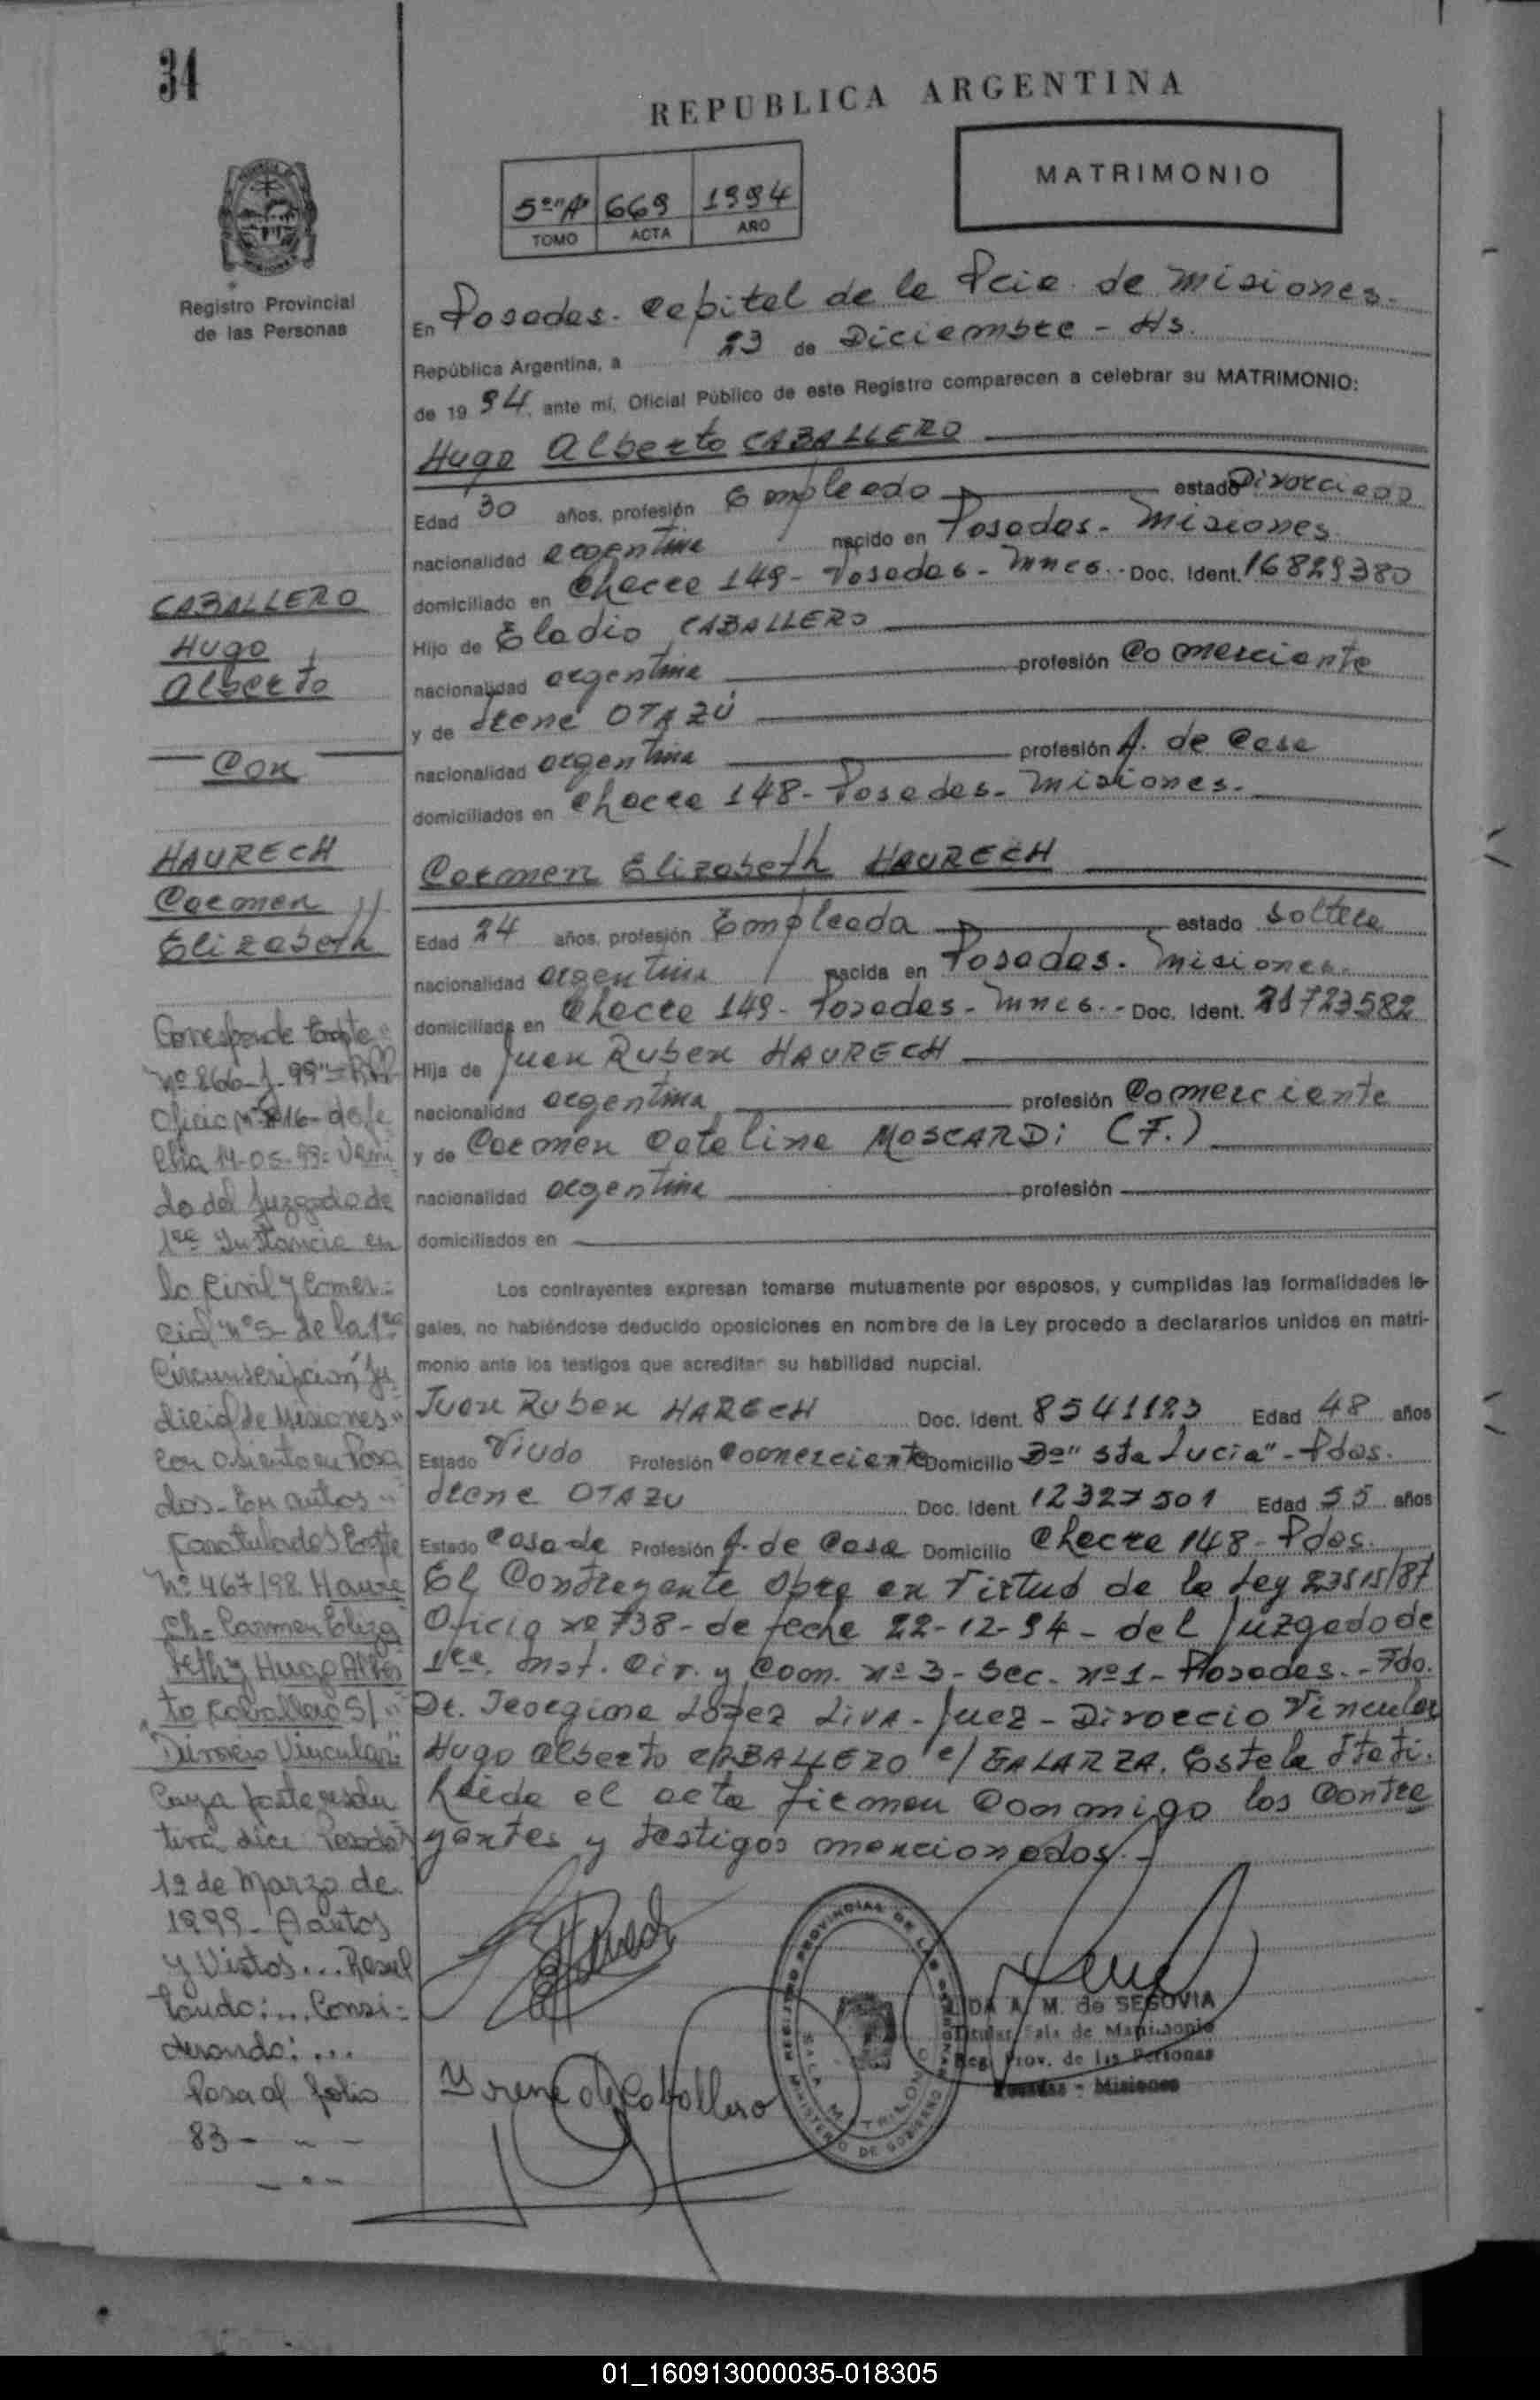 34
REPUBLICA ARGENTINA
MATRIMONIO
5º "A" 669 1994
TOMO ACTA AÑO
Registro Provincial
de las Personas
En Posadas. Capital de la Pcia. de Misiones.
República Argentina, a 23 de Diciembre - Hs.
de 19 94, ante mí, Oficial Público de este Registro comparecen a celebrar su MATRIMONIO:
Hugo Alberto CABALLERO
Edad 30 años, profesión Empleado estado Divorciado
nacionalidad argentina nacido en Posadas - Misiones.
domiciliado en Chacra 149 - Posadas - Mnes. - Doc. Ident. 16829380
Hijo de Eladio CABALLERO
nacionalidad argentina profesión Comerciante
y de Irene OTAZÚ
nacionalidad argentina profesión A. de Casa
domiciliados en Chacra 148 - Posadas - Misiones.
Carmen Elizabeth HAURECH
Edad 24 años, profesión Empleada estado Soltera
nacionalidad argentina nacida en Posadas. Misiones.
domiciliada en Chacra 149 - Posadas - Mnes. - Doc. Ident. 21723582
Hija de Juan Ruben HAURECH
nacionalidad argentina profesión Comerciante
y de Carmen Catalina MOSCARDI (F.)
nacionalidad argentina profesión
domiciliados en
Los contrayentes expresan tomarse mutuamente por esposos, y cumplidas las formalidades le-
gales, no habiéndose deducido oposiciones en nombre de la Ley procedo a declararlos unidos en matri-
monio ante los testigos que acreditan su habilidad nupcial.
Juan Ruben HARECH Doc. Ident. 8541123 Edad 48 años
Estado Viudo Profesión Comerciante Domicilio Bº "Sta Lucia" - Pdas.
Irene OTAZU Doc. Ident. 12327501 Edad 55 años
Estado Casada Profesión A. de Casa Domicilio Chacra 148 - Pdas.
El Contrayente obra en Virtud de la Ley 23515/87
Oficio nº 738 - de fecha 22-12-94 - del Juzgado de
1era. Inst. Civ. y Com. nº 3 - Sec. nº 1 - Posadas. - Fdo.
Dr. Georgina López Liva - Juez - Divorcio Vincular
Hugo Alberto CABALLERO c/ GALARZA, Estela Itati.
Leida el acta firman Conmigo los Contra
yentes y testigos mencionados. -
Irene O de Caballero
REGISTRO PROVINCIAL DE LAS PERSONAS
SALA MATRIMONIO
MINISTERIO DE GOBIERNO
LIDA A. M. de SEGOVIA
Titular Sala de Matrimonio
Reg. Prov. de las Personas
Posadas - Misiones
CABALLERO
Hugo
Alberto
Con
HAURECH
Carmen
Elizabeth
Corresponde Expte
Nº 866-J-99
Oficio Nº 816- de fe
cha 14-05-99- Veni
do del Juzgado de
1ra Instancia en
lo Civil y Comer-
cial Nº 5 de la 1ra
Circunscripcion Ju
dicial de Misiones
con asiento en Posa
das - En autos
Caratulados Expte
Nº 467/98 Haure
ch- Carmen Eliza
beth y Hugo Alber
to Caballero S/
"Divorcio Vincular"
Cuya parte resolu
tiva dice Posadas
12 de Marzo de
1999- Autos
y Vistos... Resul
tando: ... Consi-
derando: ...
Pasa al folio
83 -
01_160913000035-018305